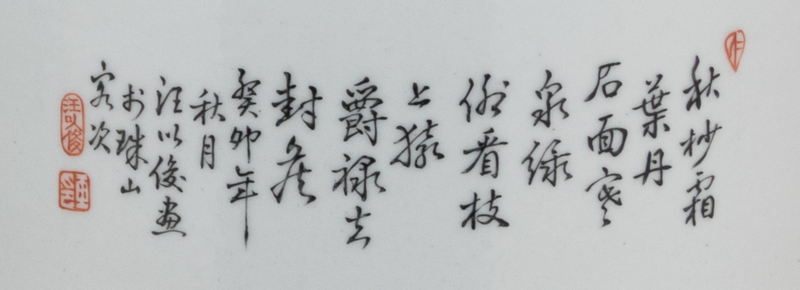 秋杪霜
葉丹
石面寒
泉綠
仰看枝
上猿
爵祿去
封侯
癸卯年
秋月
汪以俊畫
於珠山
客次
汪以俊